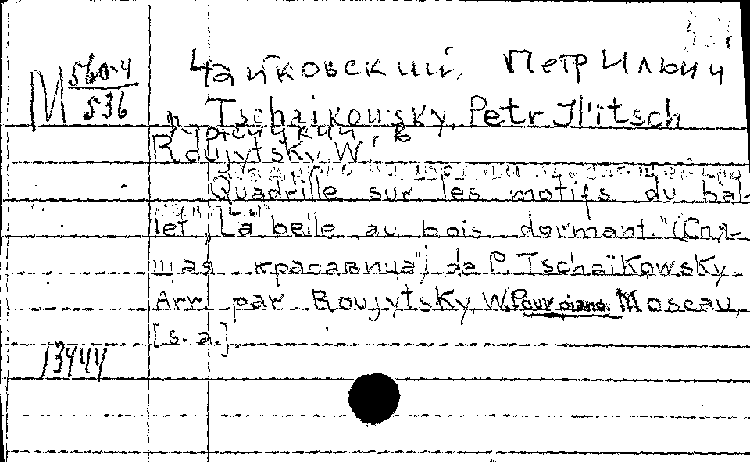 М 560-4
536
Чайковский, Петр Ильич
Tschaikowsky, Petr Il'itsch
Roujytsky, W.
Quadrille sur les motifs du bal-
let "La belle au bois dormant." (Спя-
щая красавица") de P. Tschaïkowsky.
Arr. par Roujytsky, W. Pour piano. Moscau,
[s. a.]
13444